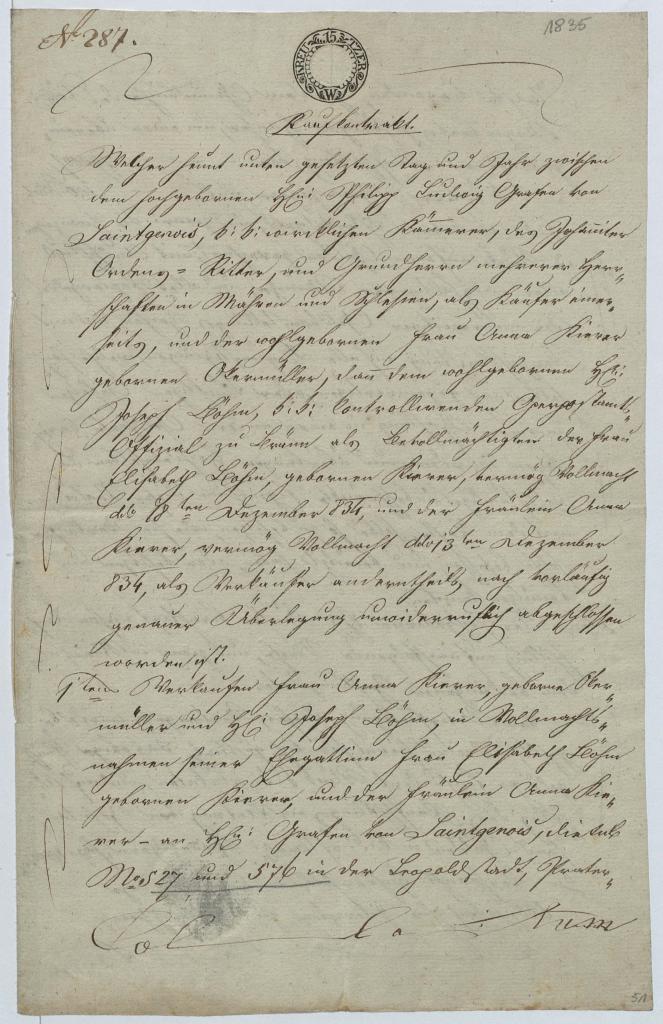 No 287.
1835
KREU 15 TZER
W
Kaufkontrakt.
Welcher heunt unten gesetzten Tag und Jahr zwischen
dem hochgebornen H: Philipp Ludwig Grafen von
Saintgenois, k: k: wirklichen Kämmerer, des Johanniter
Ordens = Ritter, und Grundherrn mehrerer Herr„
schaften in Mähren und Schlesien, als Käufer einer„
seits, und der wohlgebornen Frau Anna Kierer
gebornen Obermüller, dann dem wohlgebornen H:
Joseph Böhm, k: k: kontrollirenden Oberpostamts„
Offizial zu Brünn als Bevollmächtigten der Frau
Elisabeth Böhm, gebornen Kierer, vermög Vollmacht
ddo 18ten Dezember 834, und der Fräulein Anna
Kierer, vermög Vollmacht ddo 13ten Dezember
834, als Verkäufer anderntheils, nach vorläufig
genauer Überlegung unwiderruflich abgeschlossen
worden ist.
1tens Verkaufen Frau Anna Kierer, geborne Ober„
müller und H: Joseph Böhm, in Vollmachts„
nahmen seiner Ehegattinn Frau Elisabeth Böhm
gebornen Kierer, und der Fräulein Anna Kie„
rer – an H: Grafen von Saintgenois, die sub
No 527 und 576 in der Leopoldstadt, Prater„
51